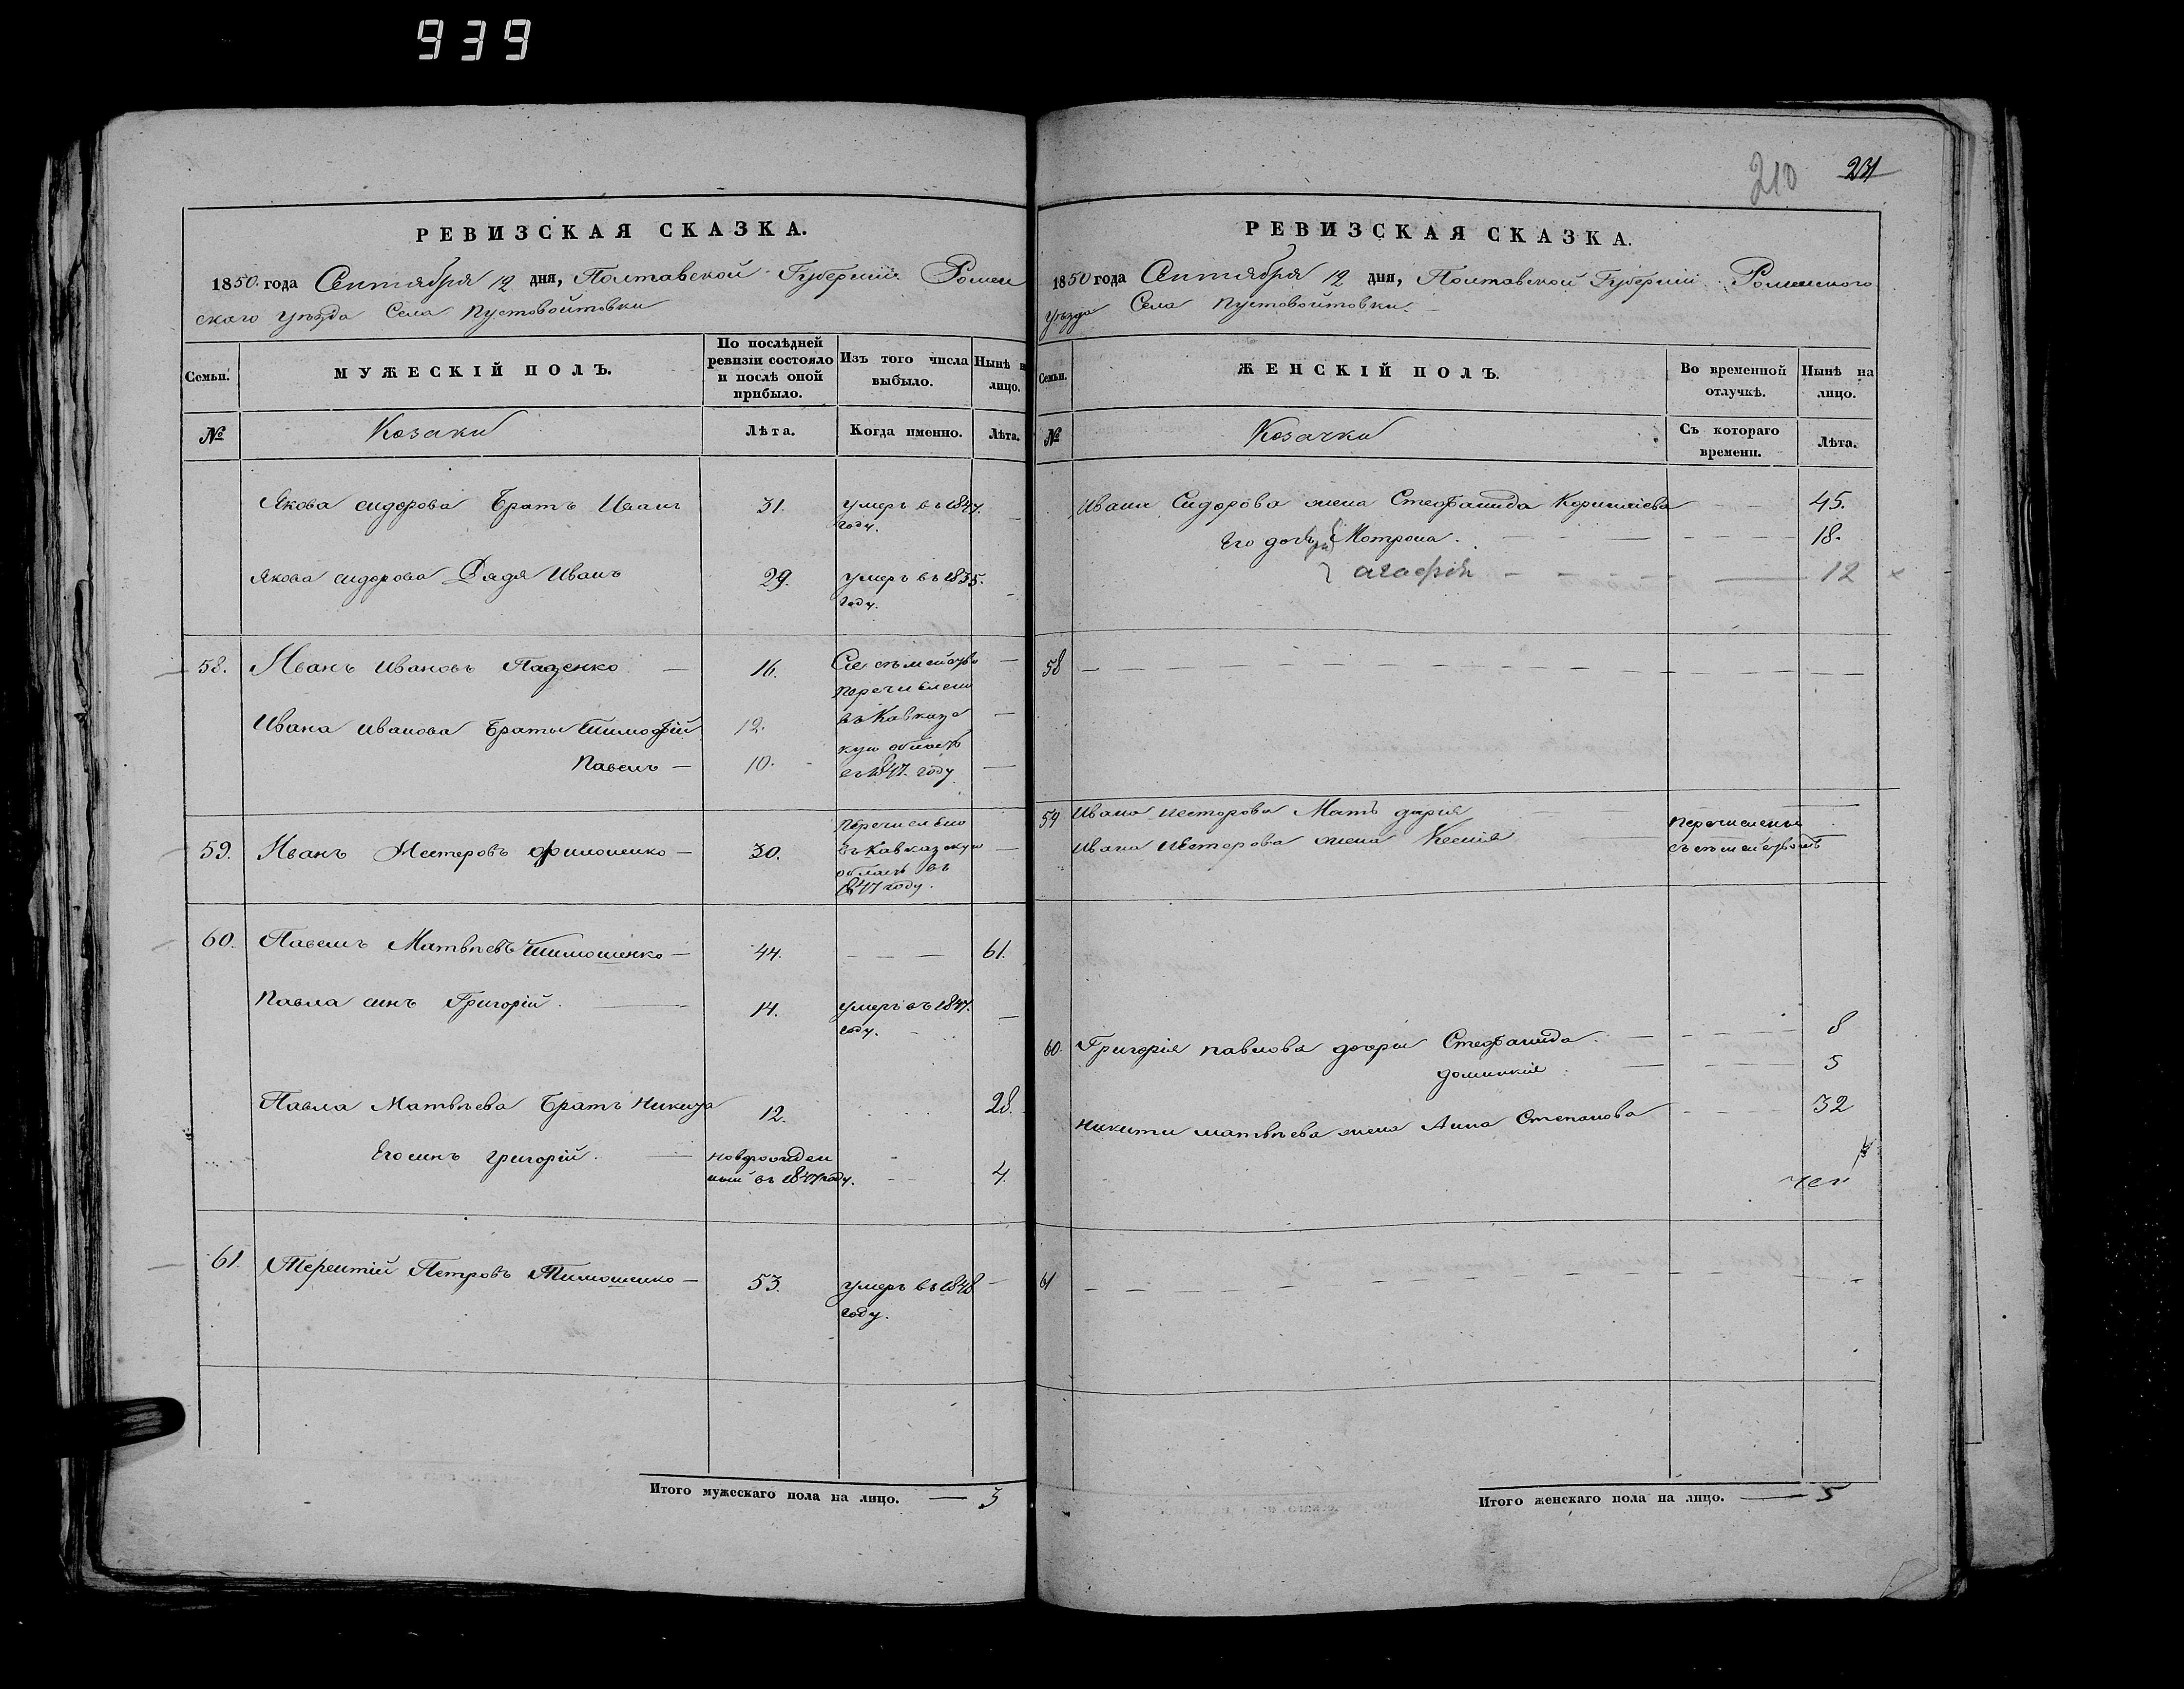 939
210 231
РЕВИЗСКАЯ СКАЗКА.
1850. года Сентября 12 дня, Полтавской Губернии Ромен
ского уѣзда Села Пустовойтовки
Семьи. МУЖЕСКІЙ ПОЛЪ. По послѣдней ревизіи состояло и послѣ оной прибыло. Изъ того числа выбыло. Нынѣ н лицо.
№ Козаки Лѣта. Когда именно. Лѣта.
Якова сидорова Братъ Иванъ 31. умеръ въ 1847.
году.
Якова сидорова Дядя Иванъ 29. умеръ въ 1835.
году.
58. Иванъ Ивановъ Пащенко — 16. Сіе съмейство —
перечислено
Ивана иванова Браты Тимофій 12. въ Кавказс —
кую область
Павелъ — 10. въ 1847. году —
59. Иванъ Нестеровъ Филоненко — 30. перечислено
въ Кавказскую —
область въ
1847 году.
60. Павелъ Матвѣевъ Тимошенко — 44. — — — 61.
Павла синъ Григорій. — 14. умеръ въ 1847.
году. —
Павла Матвѣева Братъ Никита 12. 28.
Его синъ григорій. — новорожден
ный въ 1847 году. 4.
61. Терентій Петровъ Тимошенко — 53. умеръ въ 1848 —
году.
Итого мужескаго пола на лицо. — 3
РЕВИЗСКАЯ СКАЗКА.
1850 года Сентября 12 дня, Полтавской Губерніи Роменского
уѣзда Села Пустовойтовки.
Семьи. ЖЕНСКІЙ ПОЛЪ. Во временной отлучкѣ. Нынѣ на лицо.
№ Козачки Съ котораго времени. Лѣта.
Ивана Сидорова жена Стефанида Корнилиева — — 45.
Его дочери Мотрона. — — — 18.
агафія — — — — 12 ×
58 — — — — — —
59 Ивана нестерова Мать дарія — перечислены
Ивана Нестерова жена Ксенія — съ съмействомъ
60. Григорія павлова дочери Стефанида. — — — 8
домникия. — — — 5
никити матвѣева жена Анна Степанова — — — 32
61 — — — — — —
Итого женскаго пола на лицо. — 5